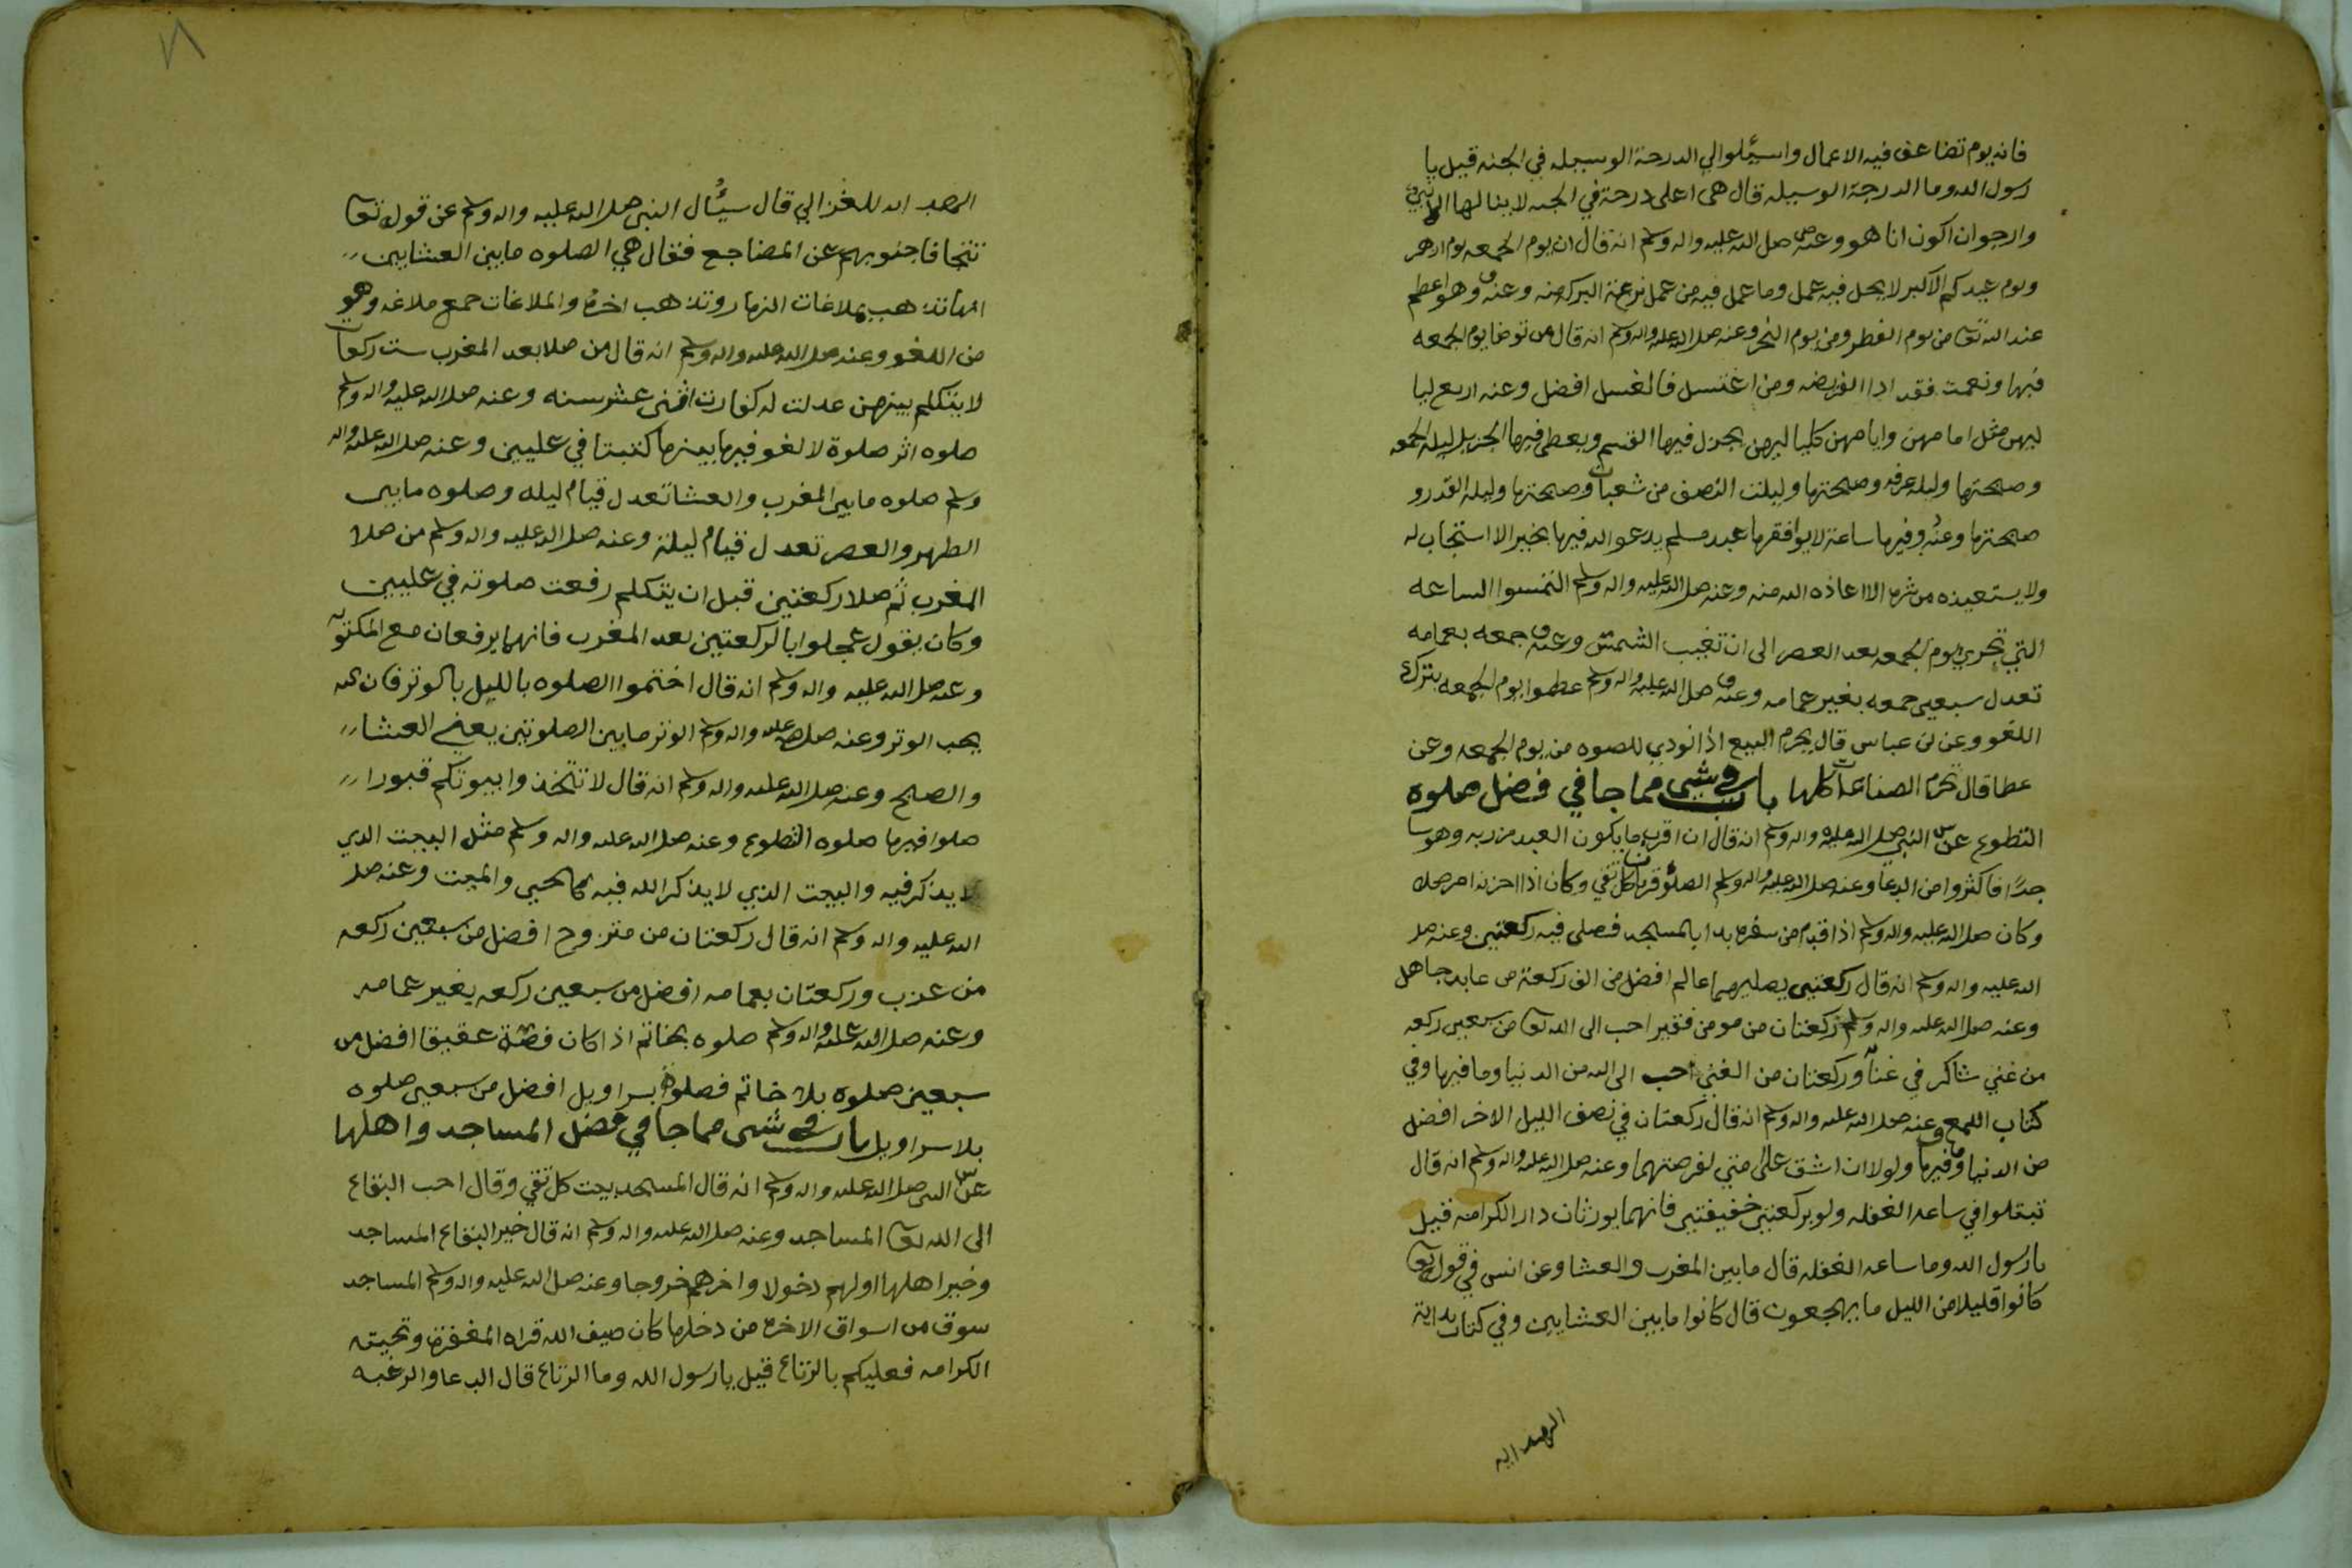 فانه يوم تضاعف فيه الاعمال واسئلوا لي الدرجة الوسيله في الجنه قيل يا
رسول الله وما الدرجة الوسيله قال هي اعلى درجة في الجنه لا ينالها الا نبي
وارجوا ان اكون انا هو وعنه صلى الله عليه واله وسلم انه قال ان يوم الجمعه يوم ازهر
ويوم عيدكم الاكبر لا يحل فيه عمل وما عمل فيه من عمل نزعة البركه منه وعنه وهو اعظم
عند الله تعا من يوم الفطر ومن يوم النحر وعنه صلا الله عليه واله وسلم انه قال من توضا يوم الجمعه
فبها ونعمت فقد ادا الفريضه ومن اغتسل فالغسل افضل وعنه اربع ليا
ليهن مثل امامهن وايامهن كلياليهن يجزل فيها القسم ويعطى فيها الجزيل ليله الجمعه
وصبحتها وليله عرفه وصبحتها وليلت النصف من شعبان وصبحتها وليله القدر و
صبحتها وعنه وفيها ساعة لا يوافقها عبد مسلم يدعوا الله فيها بخير الا استجاب له
ولا يستعيذه من شر الا اعاذه الله منه وعنه صلا الله عليه واله وسلم التمسوا الساعه
التي تحري يوم الجمعه بعد العصر الى ان تغيب الشمس وعنه جمعه بعمامه
تعدل سبعين جمعه بغير عمامه وعنه صلى الله عليه واله وسلم عظموا يوم الجمعه بترك
اللغو وعن بن عباس قال يحرم البيع اذا نودي للصوه من يوم الجمعه وعن
عطا قال تحرم الصناعات كلها باب في شي مما جا في فضل صلوه
التطوع عن النبي صلا الله عليه واله وسلم انه قال ان اقرب ما يكون العبد من ربه وهو سا
جدًا فاكثروا من الدعا وعنه صلا الله عليه واله وسلم الصلوه قربان كل تقي وكان اذا احزنه امر صلا
وكان صلا الله عليه واله وسلم اذا قدم من سفره بدا بالمسجد فصلى فيه ركعتين وعنه صلا
الله عليه واله وسلم انه قال ركعتين يصليهما عالم افضل من الف ركعة من عابد جاهل
وعنه صلا الله عليه واله وسلم ركعتان من مومن فقير احب الى الله تعا من سبعين ركعه
من غني شاكر في غناه وركعتان من الغني احب الى الله من الدنيا وما فيها وفي
كتاب اللمع وعنه صلا الله عليه واله وسلم انه قال ركعتان في نصف الليل الاخر افضل
من الدنيا وما فيها ولولا ان اشق على امتي لفرضتهما وعنه صلا الله عليه واله وسلم انه قال
تنفلوا في ساعه الغفله ولو بركعتين خفيفتين فانهما يورثان دار الكرامه قيل
يا رسول الله وما ساعه الغفله قال ما بين المغرب والعشا وعن انس في قوله تعا
كانوا قليلا من الليل ما يهجعون قال كانوا ما بين العشايين وفي كتاب بداية
الهدايه
الهدايه للغزالي قال سئُال النبي صلا الله عليه واله وسلم عن قوله تعا
تتجافا جنوبهم عن المضاجع فقال هي الصلوه ما بين العشايين
انها تذهب بملاغات النهار وتذهب اخره والملاغات جمع ملاغه وهو
من اللغو وعنه صلا الله عليه واله وسلم انه قال من صلا بعد المغرب ست ركعات
لا يتكلم بينهن عدلت له كفارت اثنى عشر سنه وعنه صلا الله عليه واله وسلم
صلوه اثر صلوة لا لغو فيها بينهما كتبتا في عليين وعنه صلا الله عليه واله
وسلم صلوه ما بين المغرب والعشا تعدل قيام ليله وصلوه ما بين
الظهر والعصر تعدل قيام ليلة وعنه صلا الله عليه واله وسلم من صلا
المغرب ثم صلا ركعتين قبل ان يتكلم رفعت صلوته في عليين
وكان يقول عجلوا بالركعتين بعد المغرب فانهما يرفعان مع المكتوبه
وعنه صلا الله عليه واله وسلم انه قال اختموا الصلوه بالليل بالوتر فان الله
يحب الوتر وعنه صلا الله عليه واله وسلم الوتر ما بين الصلوتين يعني العشا
والصبح وعنه صلا الله عليه واله وسلم انه قال لا تتخذوا بيوتكم قبورا
صلوا فيها صلوه التطوع وعنه صلا الله عليه واله وسلم مثل البيت الدي
لا يذكر فيه والبيت الذي لا يذكر الله فيه كالحيي والميت وعنه صلا
الله عليه واله وسلم انه قال ركعتان من متزوج افضل من سبعين ركعه
من عزب وركعتان بعمامه افضل من سبعين ركعه بغير عمامه
وعنه صلا الله عليه واله وسلم صلوه بخاتم اذا كان فصّه عقيقا افضل من
سبعين صلوه بلا خاتم فصلوه بسراويل افضل من سبعين صلوه
بلا سراويل باب في شي مما جا في فضل المساجد واهلها
عن النبي صلا الله عليه واله وسلم انه قال المسجد بيت كل تقي وقال احب البقاع
الى الله تعا المساجد وعنه صلا الله عليه واله وسلم انه قال خير البقاع المساجد
وخير اهلها اولهم دخولا واخرهم خروجا وعنه صلى الله عليه واله وسلم المساجد
سوق من اسواق الاخره من دخلها كان ضيف الله قراه المغفرة وتحيته
الكرامه فعليكم بالرتاع قيل يا رسول الله وما الرتاع قال الدعا والرغبه